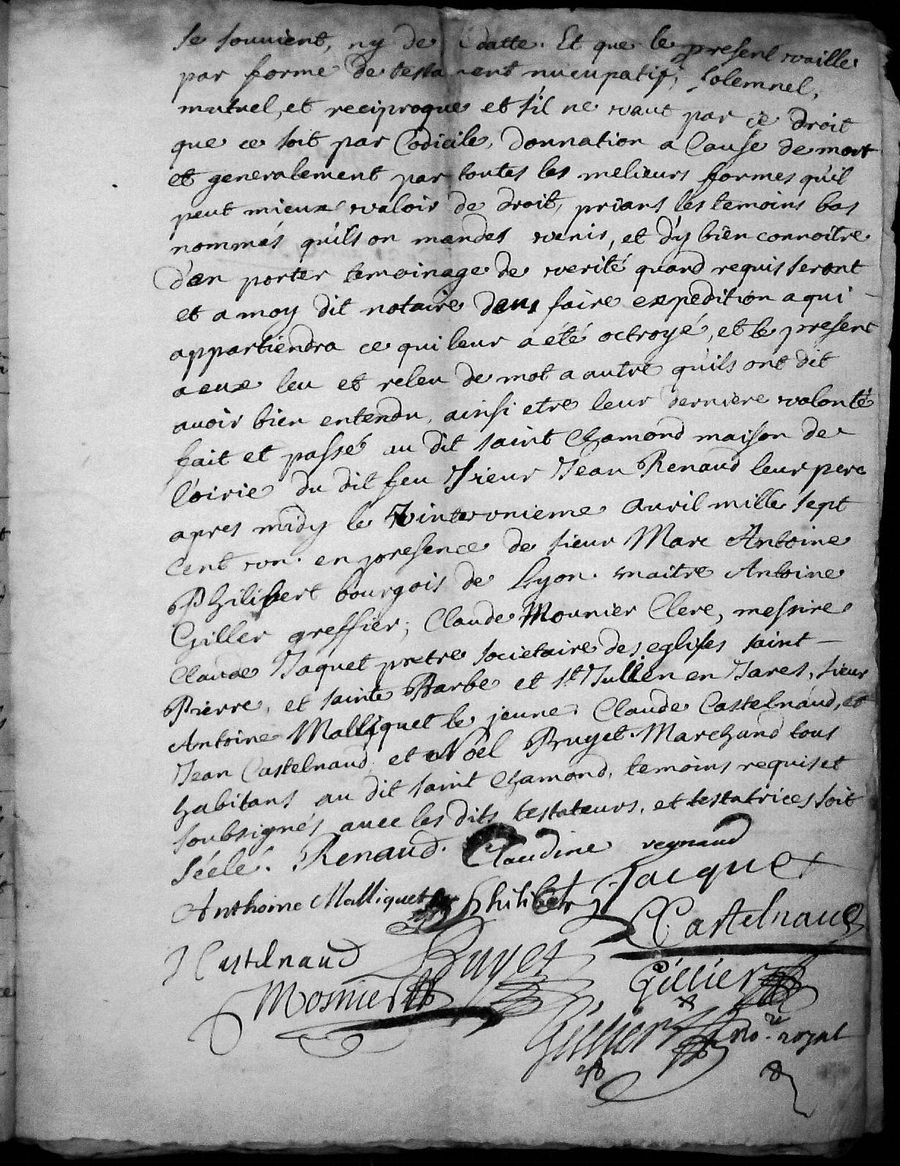 se souvient, ny de datte. Et que le present vaille
par forme de testament nucupatif, solemnel,
mutuel, et reciproque et s'il ne vaut par ce droit
que ce soit par Codicile, donnation a Cause de mort
et generalement par toutes les melieurs formes qu'il
peut mieux valoir de droit, prians les temoins bas
nommés qu'ils on mandes venis, et d'y bien connoitre
d'en porter temoinage de verité quand requis seront
et a moy dit notaire d'en faire expedition a qui
appartiendra ce qui leur a eté octroyé, et le present
a eux leu et releu de mot a autre qu'ils ont dit
avoir bien entendu, ainsi etre leur derniere volonté
fait et passé au dit saint Chamond maison de
l'oirie du dit feu sieur Jean Renaud leur pere
apres midy le vintevnieme avril mille sept
cent vn. en presence de sieur Marc Antoine
Philibert bourgois de Lyon. maitre Antoine
Gillier greffier; Claude Mounier Clerc, messire
Claude Jaquet pretre societaire des eglises saint
Pierre, et sainte Barbe et st. Jullien en Jares, sieur
Antoine Malliquet le jeune, Claude Castelnaud, et
Jean Castelnaud et Noël Bruyet Marchand tous
habitans au dit saint Chamond, temoins requis et
soubsignés avec les dits testateurs, et testatrices soit
séelé. Renaud. Claudine regnaud
Anthoine Malliquet Philibert Jacquet
C Castelnaud
J Castelnaud Bruyet Gillier
Mosnier
Gillier no.re royal